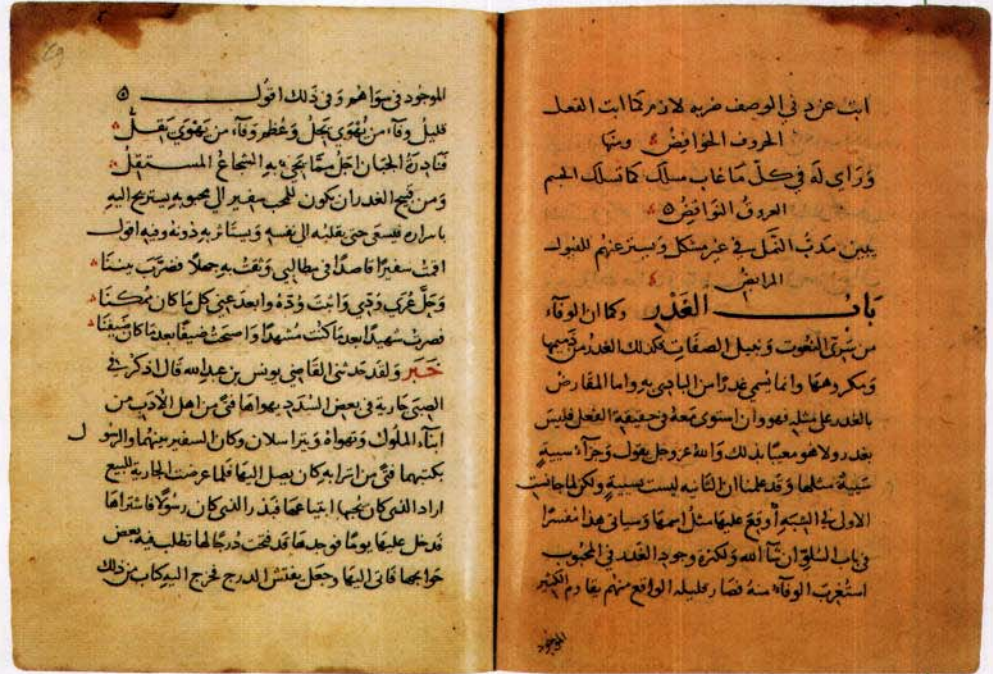 ابت عزم في الوصف ضربه لازم كما ابت الفعل
الحروف الخوافض ومنها
وراى له في كل ما غاب مسلك كما تسلك الجسم
العروق النوابض
يبين مدب النمل في غير مشكل ويستر عنهم للفيول
المرابض
باب الغدر وكما ان الوفاء
من سرى النعوت ونبيل الصفات فكذلك الغدر من ذميمها
ومكروهها وانما يسمي غدرا من البادي به واما المقارض
بالغدر على مثله فهو وان استوي معه في حقيقة الفعل فليس
بغدر ولا هو معيبا بذلك والله عز وجل يقول وجزاء سيية
سيية مثلها وقد علمنا ان الثانيه ليست بسيية ولكن لما جانست
الاولى في الشبه اوقع عليها مثل اسمها وسياتي هذا مفسرا
في باب السلو ان شا الله ولكثرة وجود الغدر في المحبوب
استغرب الوفاء منه فصار قليله الواقع منهم يقاوم الكثير
الموجود
الموجود في سواهم وفي ذلك اقول
قليل وفاء من يهوي يجل وعظم وفاء من يهوي يقل
فنادرة الجبان اجل مما يجيء به الشجاع المستقل
ومن قبيح الغدر ان يكون للمحب سفير الي محبوبه يستريح اليه
باسراره فيسعى حتى يقلبه الي نفسه ويستاثر به دونه وفيه اقول
اقمت سفيرا قاصدا في مطالبي وثقت به جهلا فضرب بيننا
وحل عرى ودي واثبت وده وابعد عني كل ما كان ممكنا
فصرت شهيدا بعد ما كنت مشهدا واصبحت ضيفا بعد ما كان ضيفنا
خبر ولقد حدثني القاضي يونس بن عبد الله قال اذكر في
الصبى جارية في بعض السدد يهواها فتى من اهل الادب من
ابناء الملوك وتهواه ويتراسلان وكان السفير بينهما والرسول
بكتبهما فتى من اترابه كان يصل اليها فلما عرضت الجارية للبيع
اراد الذي كان يحبها ابتياعها فبذر الذي كان رسولا فاشتراها
فدخل عليها يوما فوجدها قد فتحت درجا لها تطلب فيه بعض
حوايجها فاتى اليها وجعل يفتش الدرج فخرج اليه كتاب من ذلك